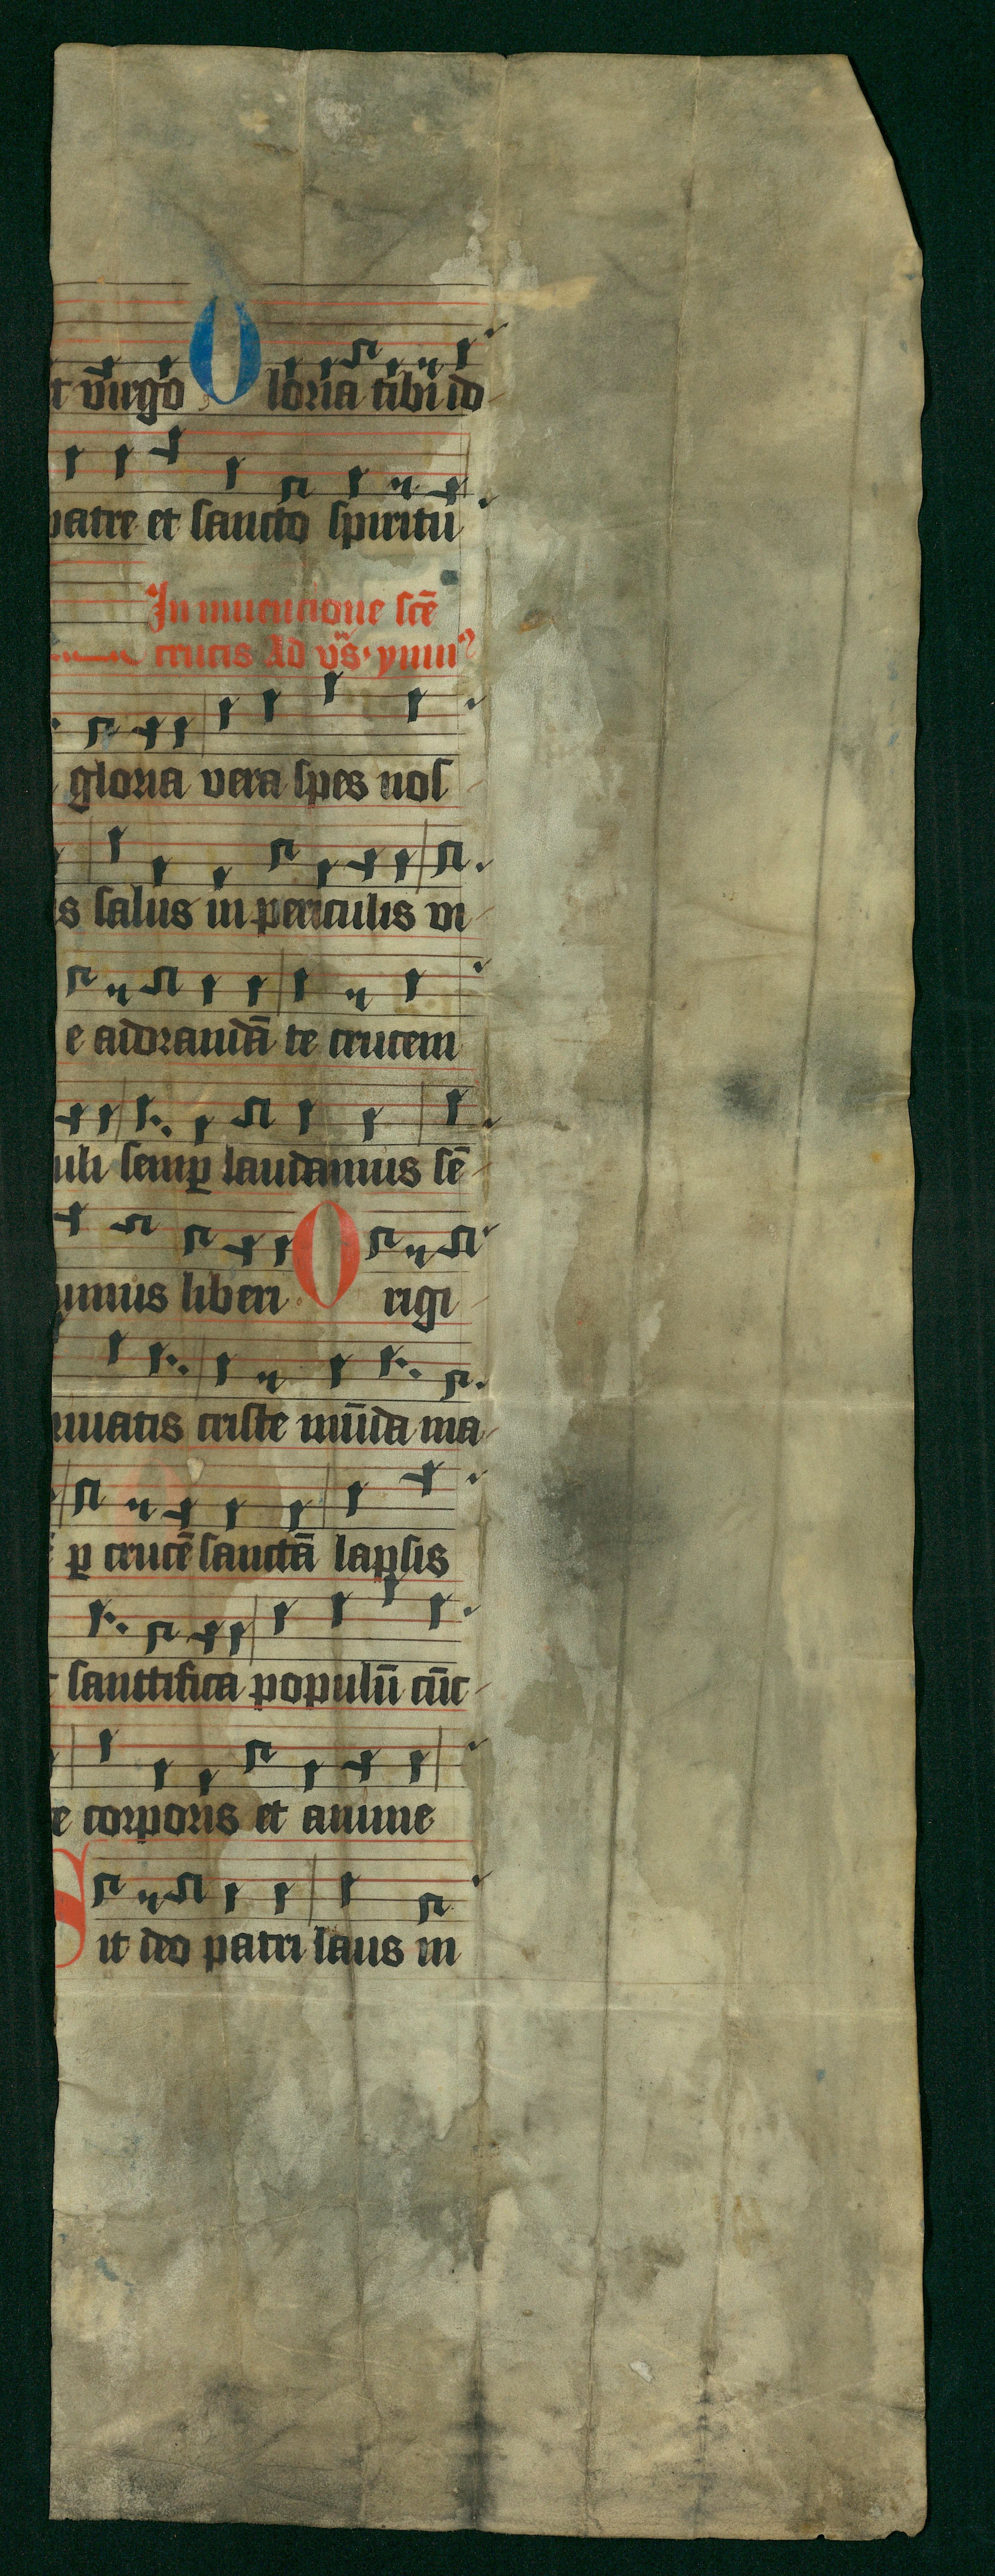 t v̄irgo O loria tibi īd
patre et sancto spiritu
In inuencione scē
crucis Ad vs̄ ymn9
gloria vera spes nos
is salus in periculis vi
e adorandā te crucem
uli semꝑ laudamus sē
imus liberi O rigi
inatis criste mūda ma
ꝑ crucē sanctā lapsis
t sanctifica populū cūc
te corporis et anime
S it deo patri laus in